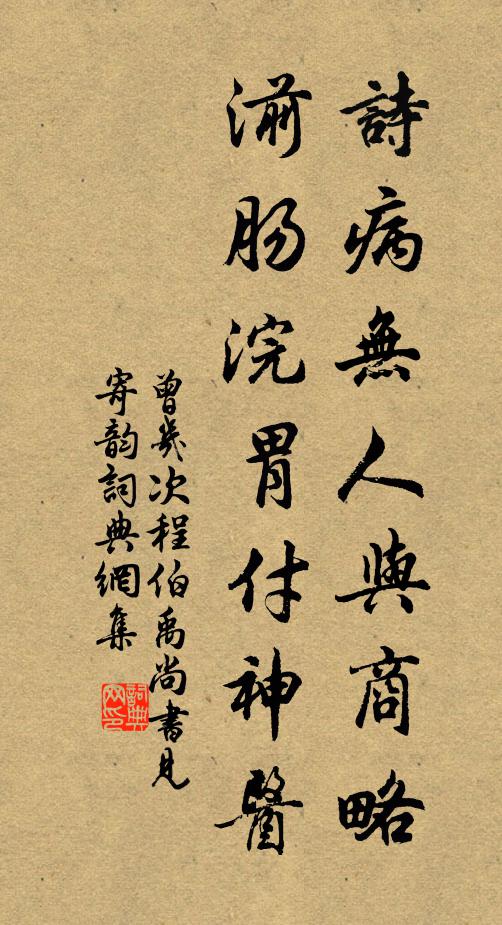 詩病無人與商略
湔肠浣胃付神醫
曾幾次程伯禹尚書見
寄韵詞典網集
詞典网印